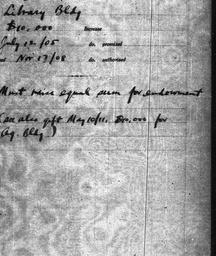 Library Bldg
$10,000 Increase
July 12/05 do. promised
Nov 17/08 do. authorized
Must raise equal sum for endowment
(see also gift May 10/11. $10,000 for
Ag. Bldg)